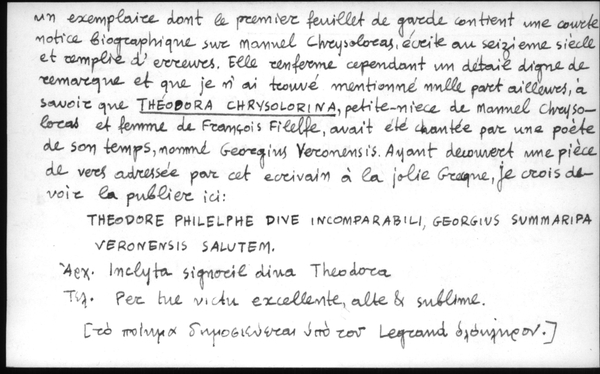 un exemplaire dont le premier feuillet de garde contient une courte
notice biographique sur Manuel Chrysoloras, écrite au seizieme siècle
et remplie d'erreurs. Elle renferme cependant un détail digne de
remarque et que je n'ai trouvé mentionné nulle part ailleurs, à
savoir que THEODORA CHRYSOLORINA, petite-niece de Manuel Chryso-
loras et femme de François Filelfe, avait été chantée par une poète
de son temps, nommé Georgius Veronensis. Ayant decouvert une pièce
de vers adressée par cet ecrivain à la jolie Grecque, je crois de-
voir la publier ici:
THEODORE PHILELPHE DIVE INCOMPARABILI, GEORGIUS SUMMARIPA
VERONENSIS SALUTEM.
Ἀρχ. Inclyta signoril diva Theodora
Τέλ. Per tue victu excellente, alte & sublime.
[τὸ ποίημα δημοσιεύεται ὑπὸ τοῦ Legrand ὁλόκληρον.]